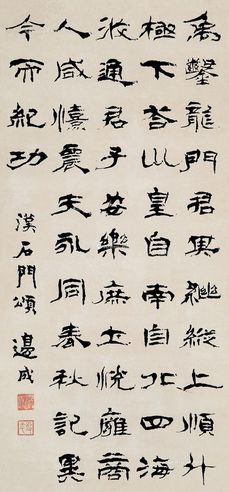 禹鑿龍門君其繼縱上順斗
極下答巛皇自南自北四海
攸通君子安樂庶士悅雍商
人咸憘農夫永同春秋記異
今而紀功
漢石門頌 邊成